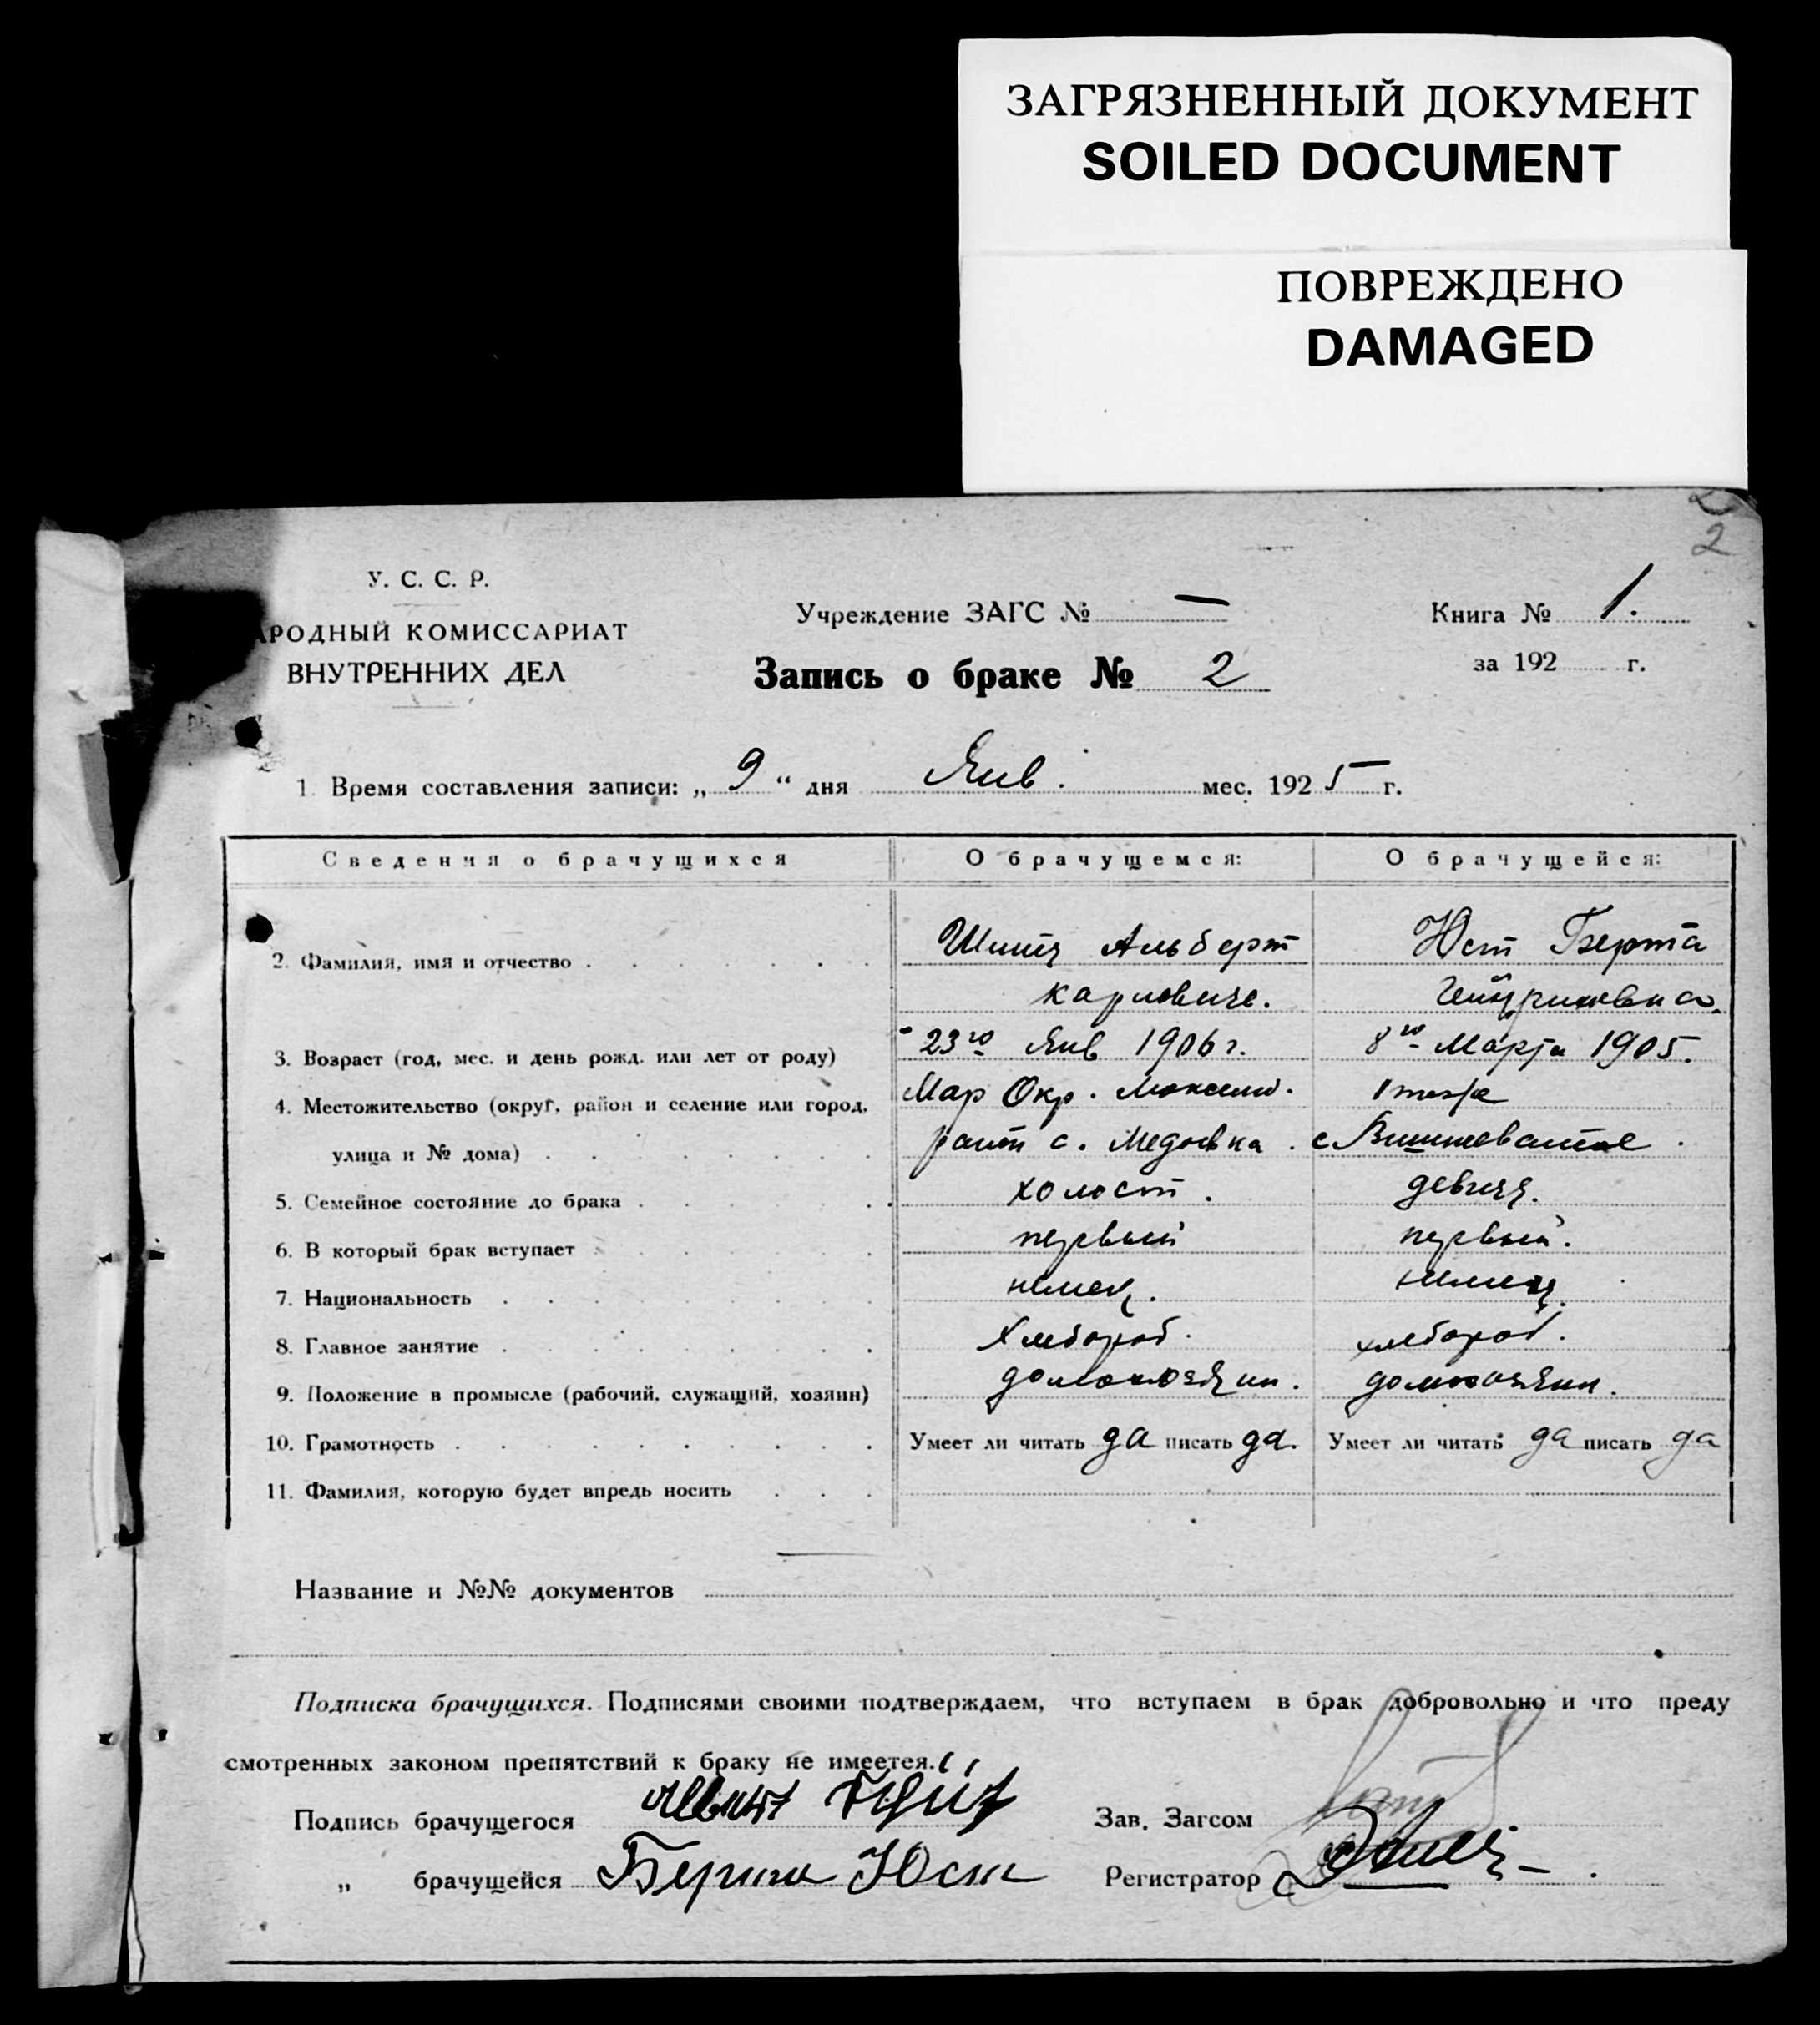 ЗАГРЯЗНЕННЫЙ ДОКУМЕНТ
SOILED DOCUMENT
ПОВРЕЖДЕНО
DAMAGED
2
У. С. С. Р.
АРОДНЫЙ КОМИССАРИАТ
ВНУТРЕННИХ ДЕЛ
Учреждение ЗАГС № —
Запись о браке № 2
Книга № 1.
за 192 г.
1. Время составления записи: „ 9 “ дня Янв. мес. 1925 г.
Сведения о брачущихся О брачущемся: О брачущейся:
2. Фамилия, имя и отчество . . . . . . . Альберт Юст Берта
3. Возраст (год, мес. и день рожд. или лет от роду) 23го Янв 1906 г. 8го Марта 1905.
4. Местожительство (округ, район и селение или город, Мар Окр.
улица и № дома) . . . . . . . . с. Медовка . с Вишневатое .
5. Семейное состояние до брака . . . . . . холост . девица.
6. В который брак вступает . . . . . . первый первый.
7. Национальность . . . . . . . . . немец. немец.
8. Главное занятие . . . . . . . . . хлебороб. хлебороб.
9. Положение в промысле (рабочий, служащий, хозяин) домохозяин. домохозяин.
10. Грамотность . . . . . . . . . . Умеет ли читать да писать да. Умеет ли читать да писать да
11. Фамилия, которую будет впредь носить . . .
Название и №№ документов
Подписка брачущихся. Подписями своими подтверждаем, что вступаем в брак добровольно и что преду
смотренных законом препятствий к браку не имеется.
Подпись брачущегося Зав. Загсом
„ брачущейся Берта Юст Регистратор